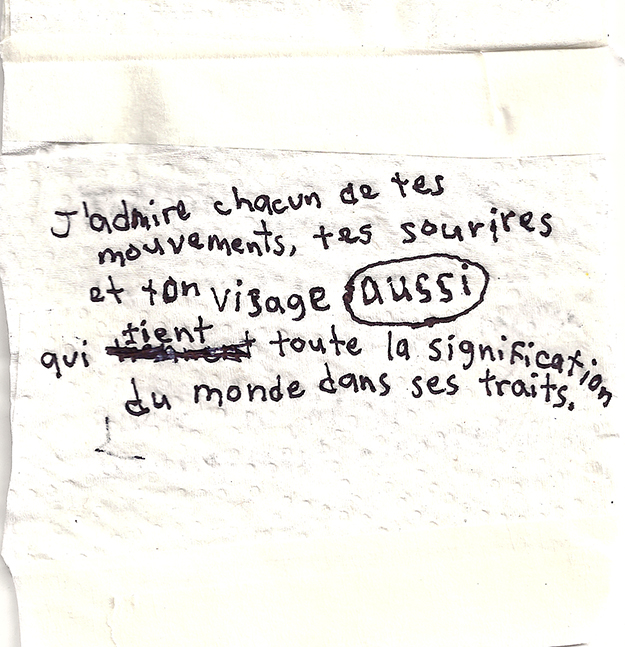 J'admire chacun de tes
mouvements, tes sourires
et ton visage aussi
qui tient toute la signification
du monde dans ses traits.